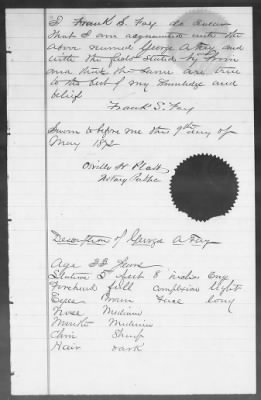 I Frank S. Fay do swear
that I am acquainted with the
above named George A Fay and
with the facts stated by him
and that the same are true
to the best of my knowledge and
belief
Frank S. Fay
Sworn to before me this 9th day of
May 1872
Orville H Platt
Notary Public
Description of George A Fay
Age 33 Years
Stature 5 feet 8 inches Eng
Forehead full complexion light
Eyes Brown Face long
Nose Medium
Mouth Medium
Chin Sharp
Hair dark